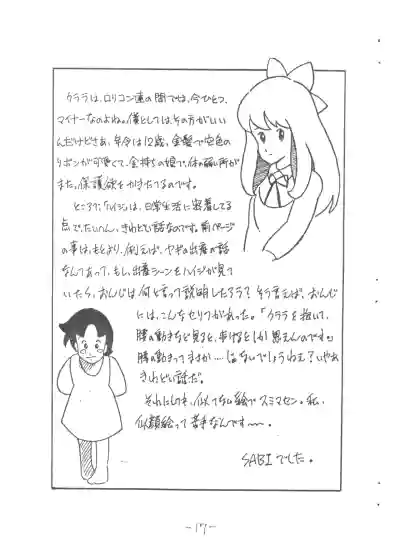 クララは、ロリコン達の間では、今ひとつ、
マイナーなのよね。僕としては、その方がいい
んだけどさあ、年令は12歳、金髪で空色の
リボンが可愛くて、金持ちの娘で、体の弱い所が
また、保護欲をかきたてるのです。
ところで、ハイジは、日常生活に密着してる
点で、たいへん、きわどい話なのです。前ページ
の事は、もとより、例えば、ヤギの出産の話
なんてあって、もし、出産シーンをハイジが見て
いたら、おんじは何と言って説明したろう?そう言えば、おんじ
には、こんなセリフがあった。「クララを抱いて、
腰の動きなど見ると、歩けるとしか思えんのです。」
腰の動きってますか……じゃないでしょうねェ?いやあ
きわどい話だ。
それにしても、似てない絵でスミマセン。私、
似顔絵って苦手なんです〜〜。
SABIでした。
-17-